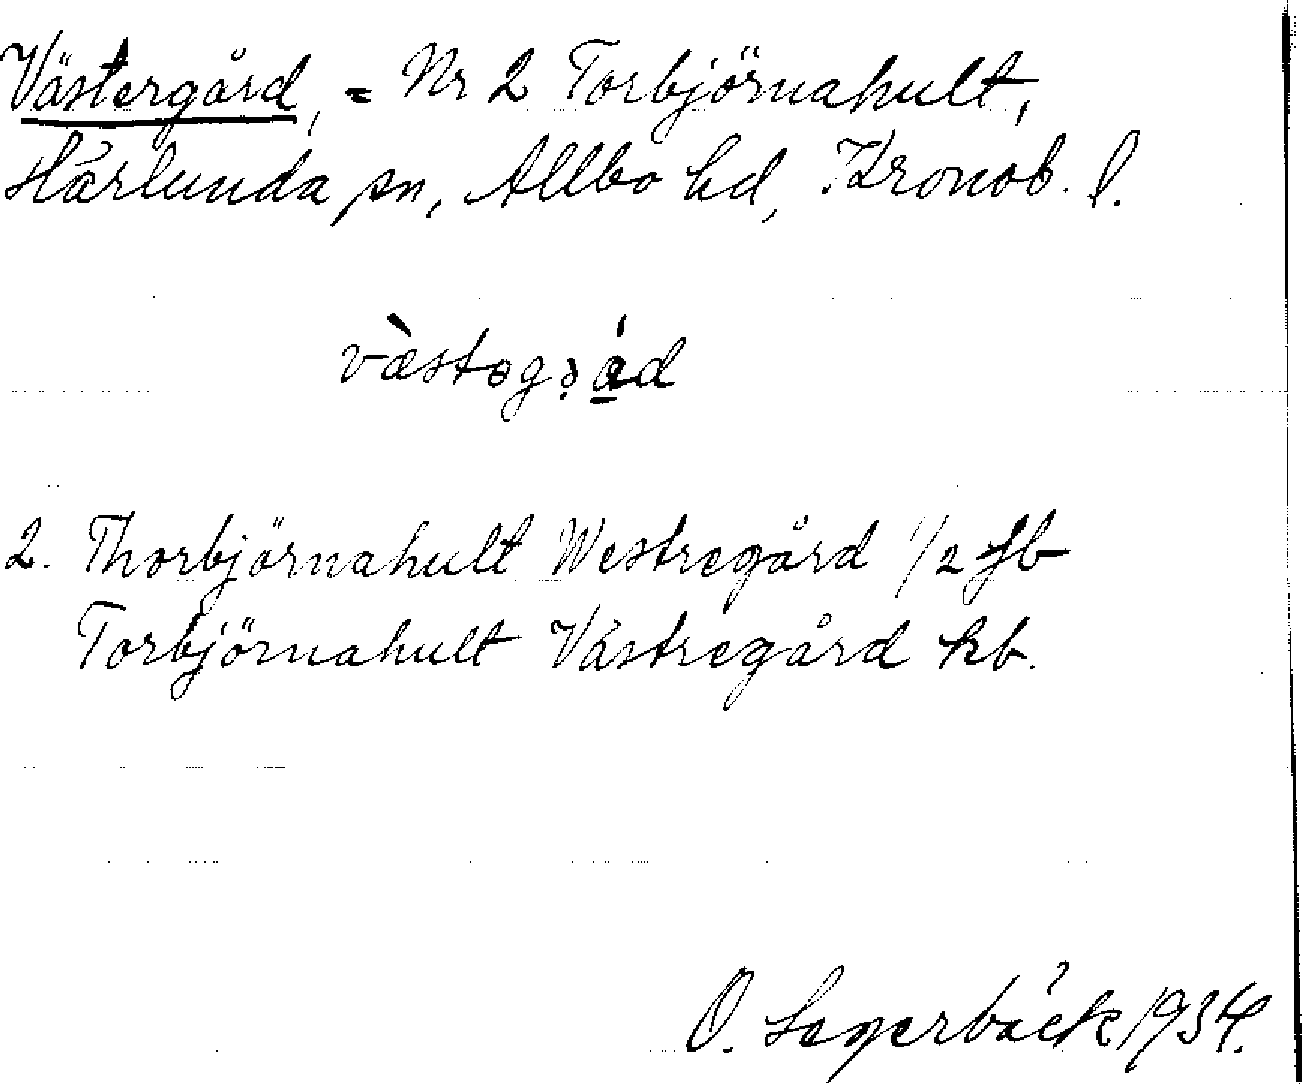 Västergård, = Nr 2 Torbjörnahult,
Härlunda sn, Allbo hd, Kronob. l.
2. Thorbjörnahult Westregård 1/2 jb
Torbjörnahult Västregård kb.
O. Lagerbäck 1934.